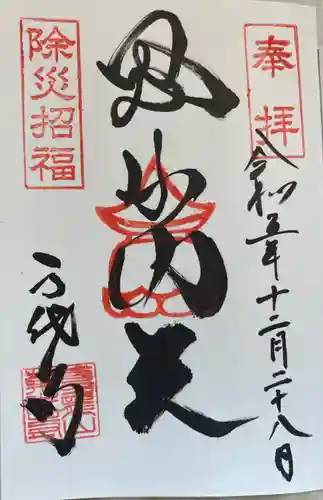 奉拝
令和五年十二月二十八日
毘沙門天
除災招福